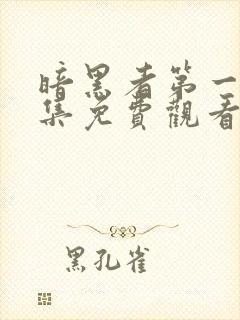 暗黑者第一
集免費觀看
黑孔雀